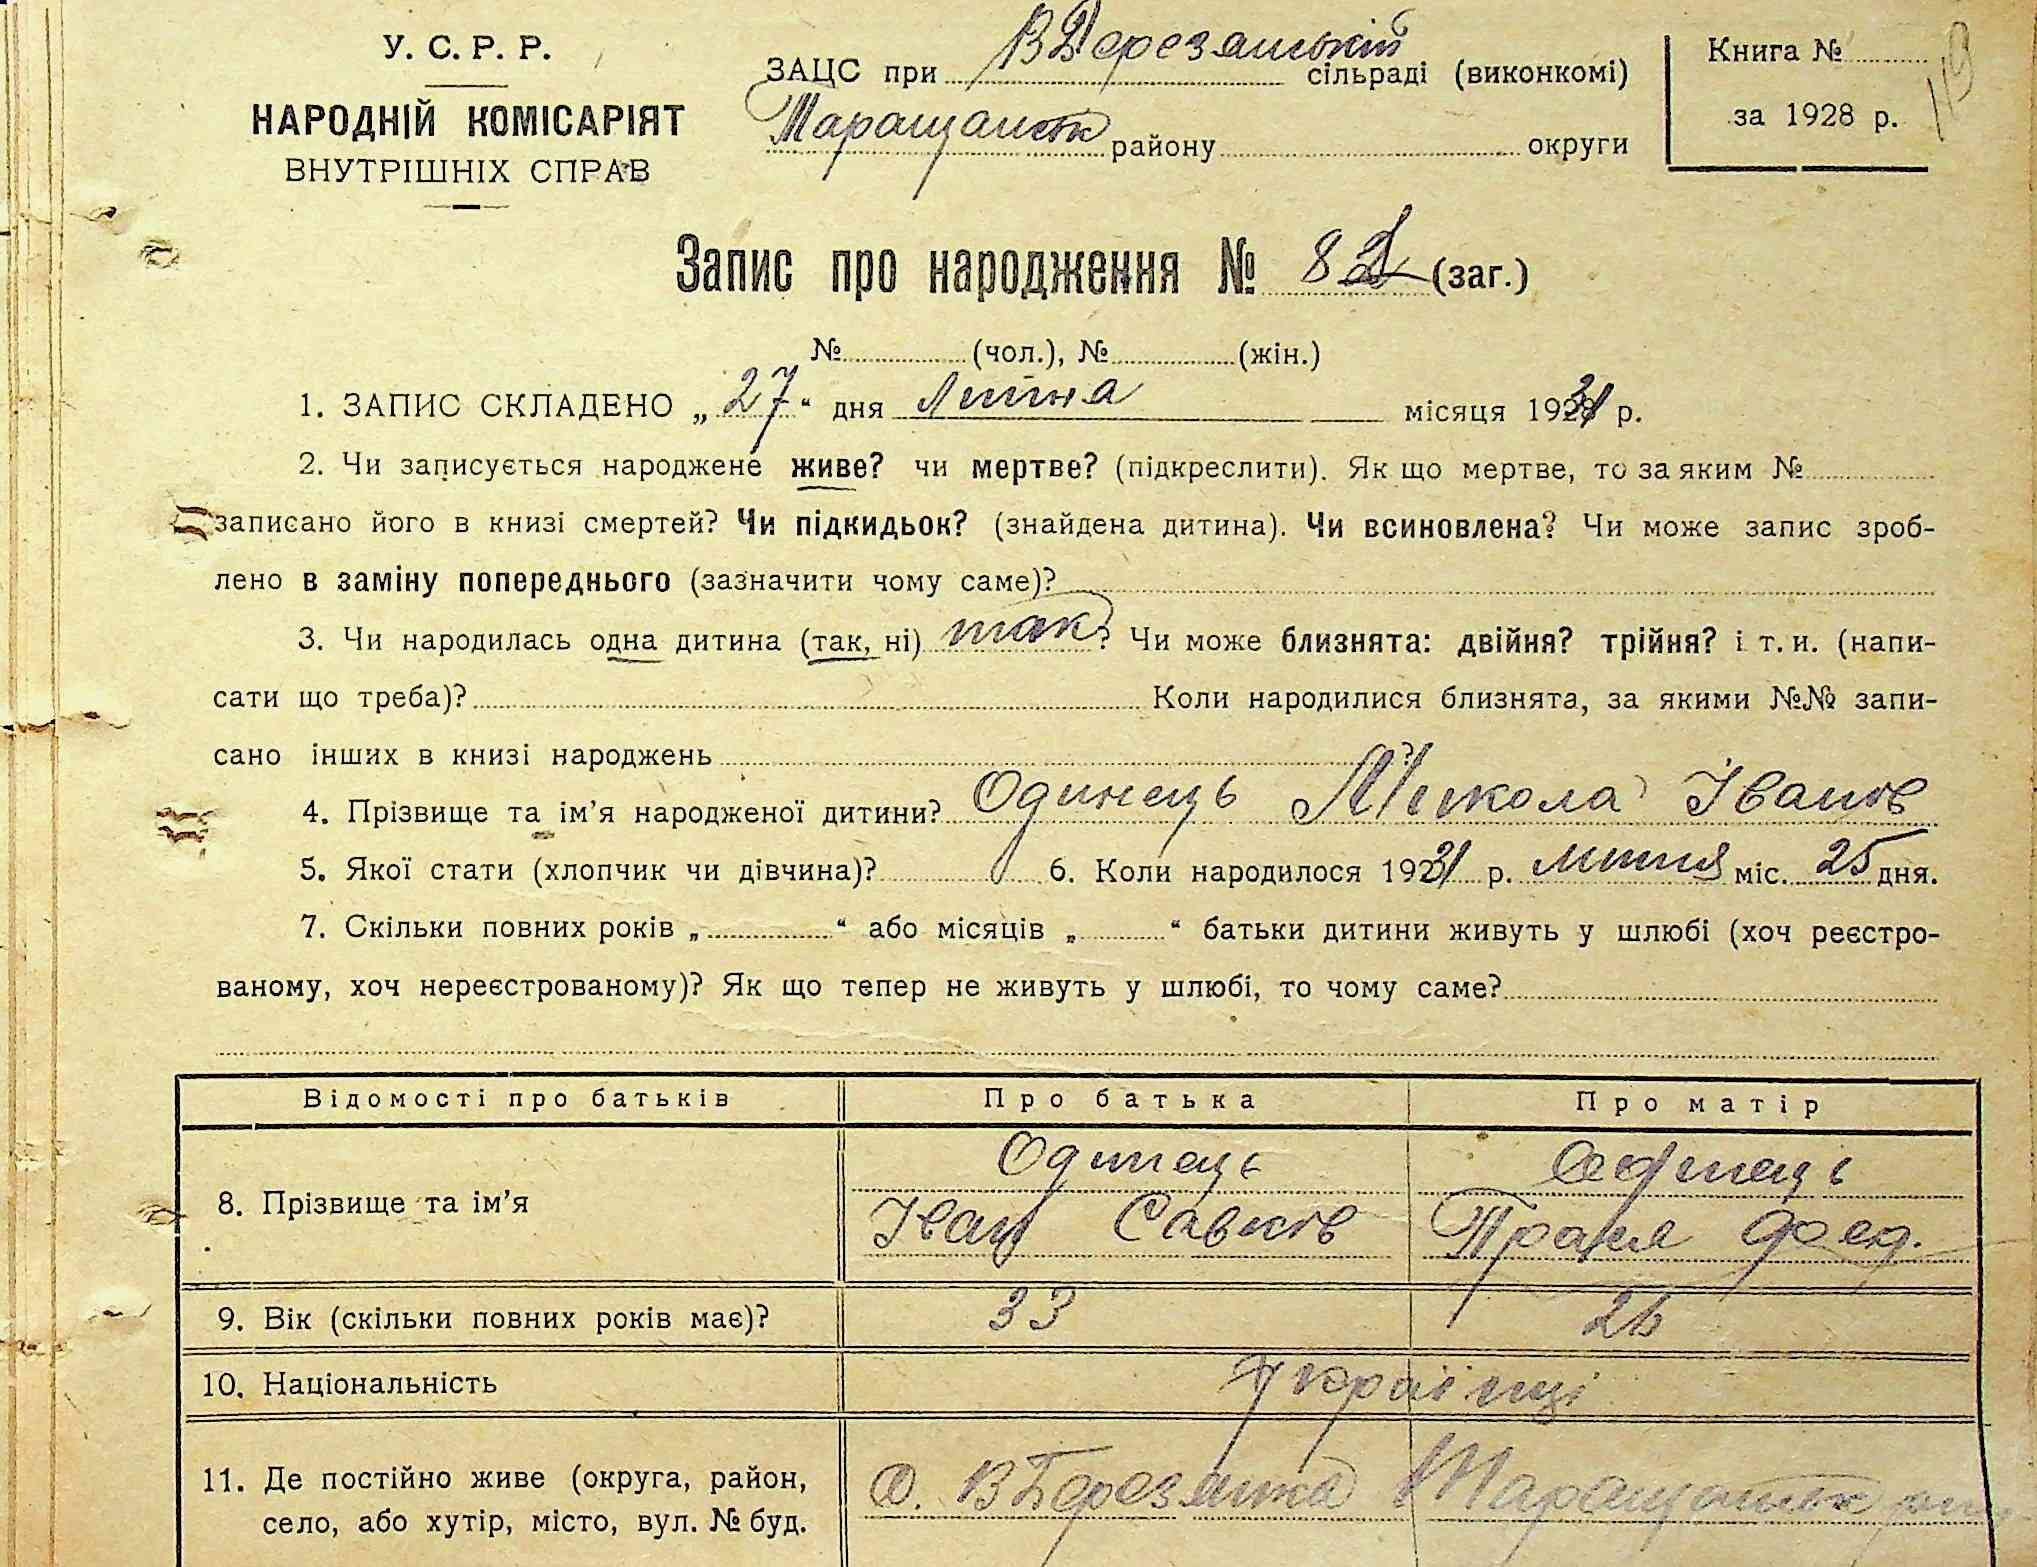 У. С. Р. Р.
НАРОДНІЙ КОМІСАРІЯТ
ВНУТРІШНІХ СПРАВ
ЗАЦС при В Березянській сільраді (виконкомі)
Таращанськ району округи
Книга №
за 1928 р.
119
Запис про народження № 82 (заг.)
№ (чол.), № (жін.)
1. ЗАПИС СКЛАДЕНО „ 27 “ дня Липня місяця 1931 р.
2. Чи записується народжене живе? чи мертве? (підкреслити). Як що мертве, то за яким №
записано його в книзі смертей? Чи підкидьок? (знайдена дитина). Чи всиновлена? Чи може запис зроб-
лено в заміну попереднього (зазначити чому саме)?
3. Чи народилась одна дитина (так, ні) так? Чи може близнята: двійня? трійня? і т. и. (напи-
сати що треба)? Коли народилися близнята, за якими №№ запи-
сано інших в книзі народжень ?
4. Прізвище та ім’я народженої дитини? Одинець Микола Іванов
5. Якої стати (хлопчик чи дівчина)? 6. Коли народилося 1931 р. липня міс. 25 дня.
7. Скільки повних років „ “ або місяців „ “ батьки дитини живуть у шлюбі (хоч реєстро-
ваному, хоч нереєстрованому)? Як що тепер не живуть у шлюбі, то чому саме?
Відомості про батьків Про батька Про матір
8. Прізвище та ім’я
Одинець
Іван Савков
Одинець
Фед.
9. Вік (скільки повних років має)? 33 26
10. Національність Українці
11. Де постійно живе (округа, район,
село, або хутір, місто, вул. № буд.
с. В Березянка Таращанськ